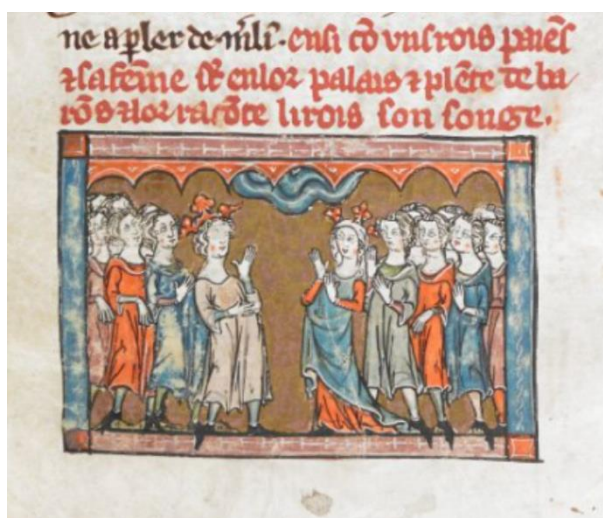 ne a ꝑler de m̃lĩ. ensi cõ vns rois paiẽs
⁊ sa fẽme sõt en lor palais ⁊ plẽte de ba
rõs ⁊ lor racõte li rois son songe.